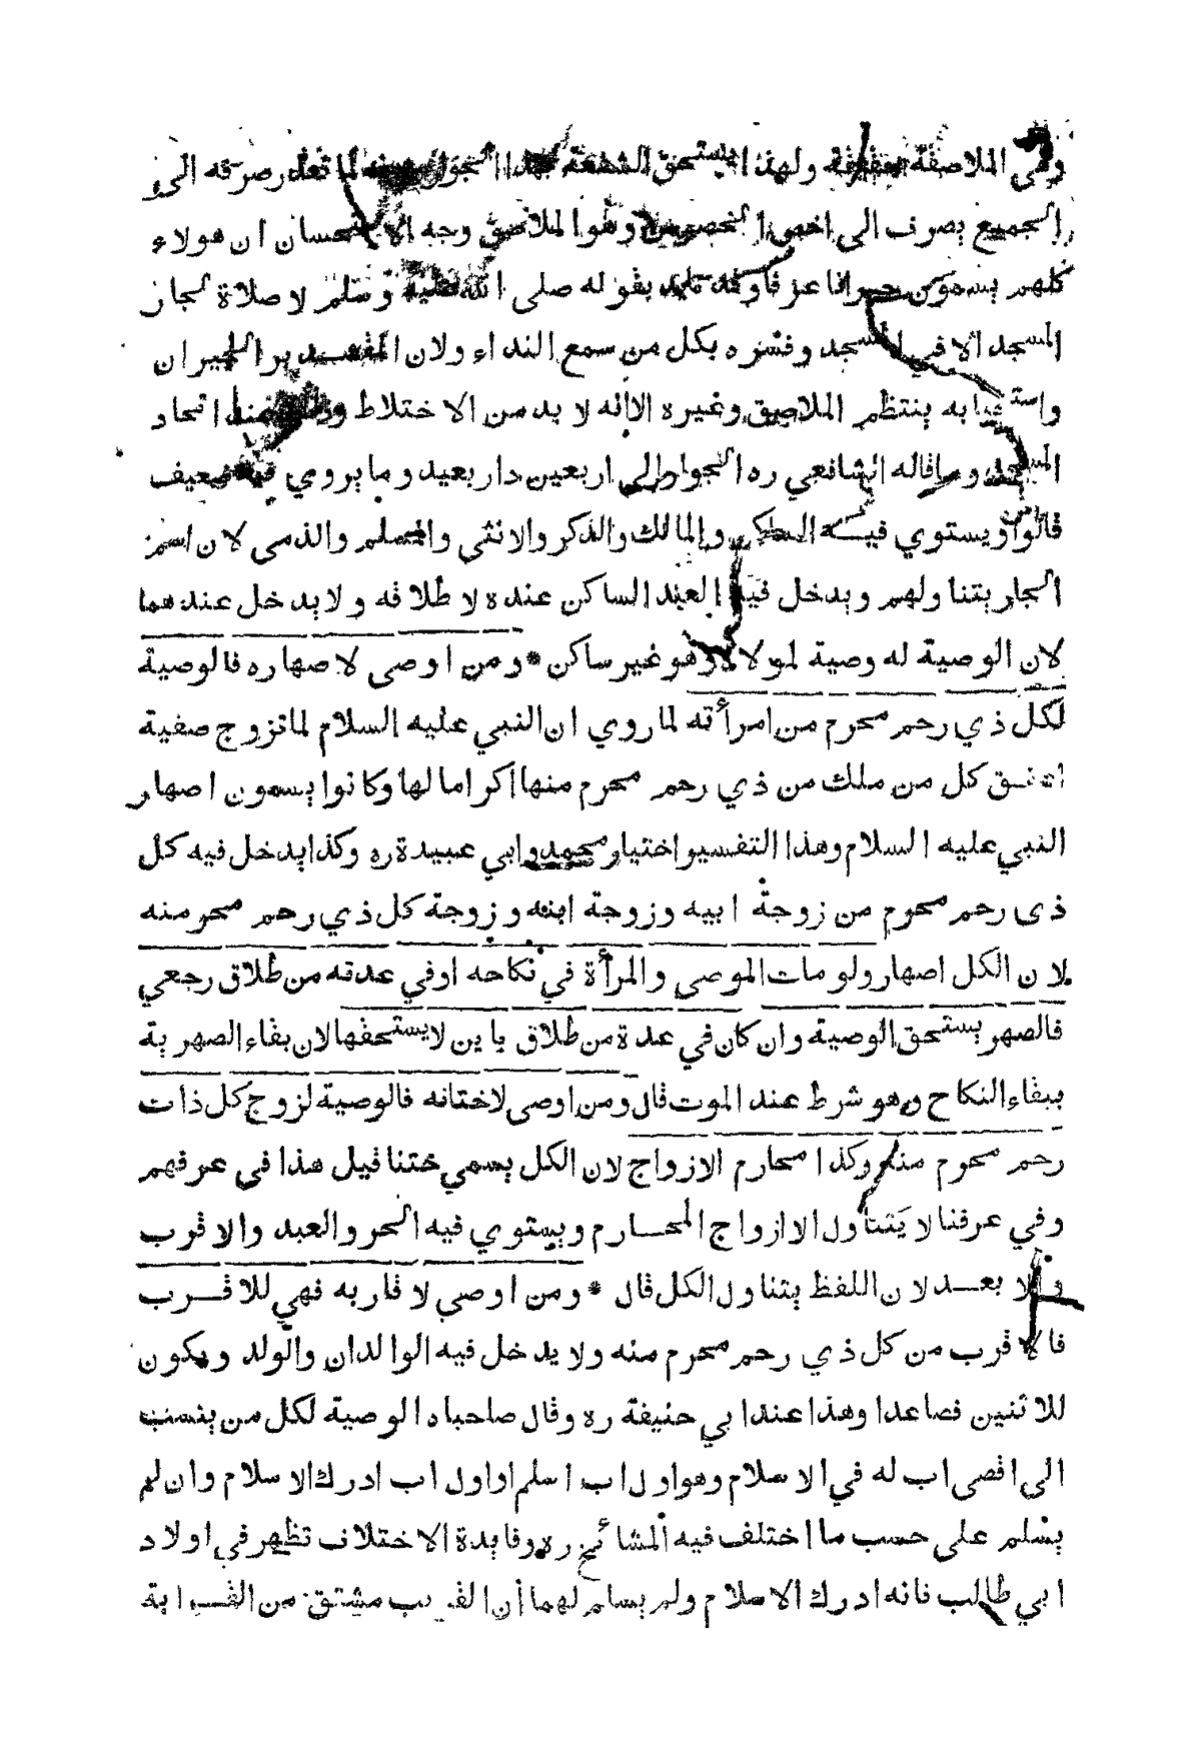 وهي الملاصقة حقيقة ولهذا يستحق الشفعة بهذا الجوار لما تعذر صرفه الى
الجميع يصرف الى اخص الخصوص وهو الملاصق وجه الاستحسان ان هولاء
كلهم يسمون جيرانا عرفا وقد تايد بقوله صلى الله عليه وسلم لا صلاة لجار
المسجد الا في المسجد وفسره بكل من سمع النداء ولان المقصد بر الجيران
واستحبابه ينتظم الملاصق وغيره الا انه لا بد من الاختلاط وذلك عند اتحاد
المسجد وما قاله الشافعي ره الجوار الى اربعين دار بعيد وما يروي فيه ضعيف
قالوا ويستوي فيه الساكن والمالك والذكر والانثى والمسلم والذمى لان اسم
الجار يتناولهم ويدخل فيه العبد الساكن عنده لاطلاقه ولا يدخل عندهما
لان الوصية له وصية لمولاه وهو غير ساكن * ومن اوصى لاصهاره فالوصية
لكل ذي رحم محرم من امرأته لما روي ان النبي عليه السلام لما تزوج صفية
اعتق كل من ملك من ذي رحم محرم منها اكراما لها وكانوا يسمون اصهار
النبي عليه السلام وهذا التفسير اختيار محمد وابي عبيدة ره وكذا يدخل فيه كل
ذى رحم محرم من زوجة ابيه وزوجة ابنه وزوجة كل ذي رحم محرم منه
لان الكل اصهار ولو مات الموصى والمرأة في نكاحه او في عدته من طلاق رجعي
فالصهر يستحق الوصية وان كان في عدة من طلاق باين لا يستحقها لان بقاء الصهرية
ببقاء النكاح وهو شرط عند الموت قال ومن اوصى لاختانه فالوصية لزوج كل ذات
رحم محرم منه وكذا محارم الازواج لان الكل يسمي ختنا قيل هذا في عرفهم
وفي عرفنا لا يتناول الا ازواج المحارم ويستوي فيه الحر والعبد والاقرب
والابعد لان اللفظ يتناول الكل قال * ومن اوصى لاقاربه فهي للاقرب
فالاقرب من كل ذي رحم محرم منه ولا يدخل فيه الوالدان والولد ويكون
للاثنين فصاعدا وهذا عند ابي حنيفة ره وقال صاحباه الوصية لكل من ينسب
الى اقصى اب له في الاسلام وهو اول اب اسلم او اول اب ادرك الاسلام وان لم
يسلم على حسب ما اختلف فيه المشائخ ره وفايدة الاختلاف تظهر في اولاد
ابي طالب فانه ادرك الاسلام ولم يسلم لهما أن القريب مشتق من القرابة